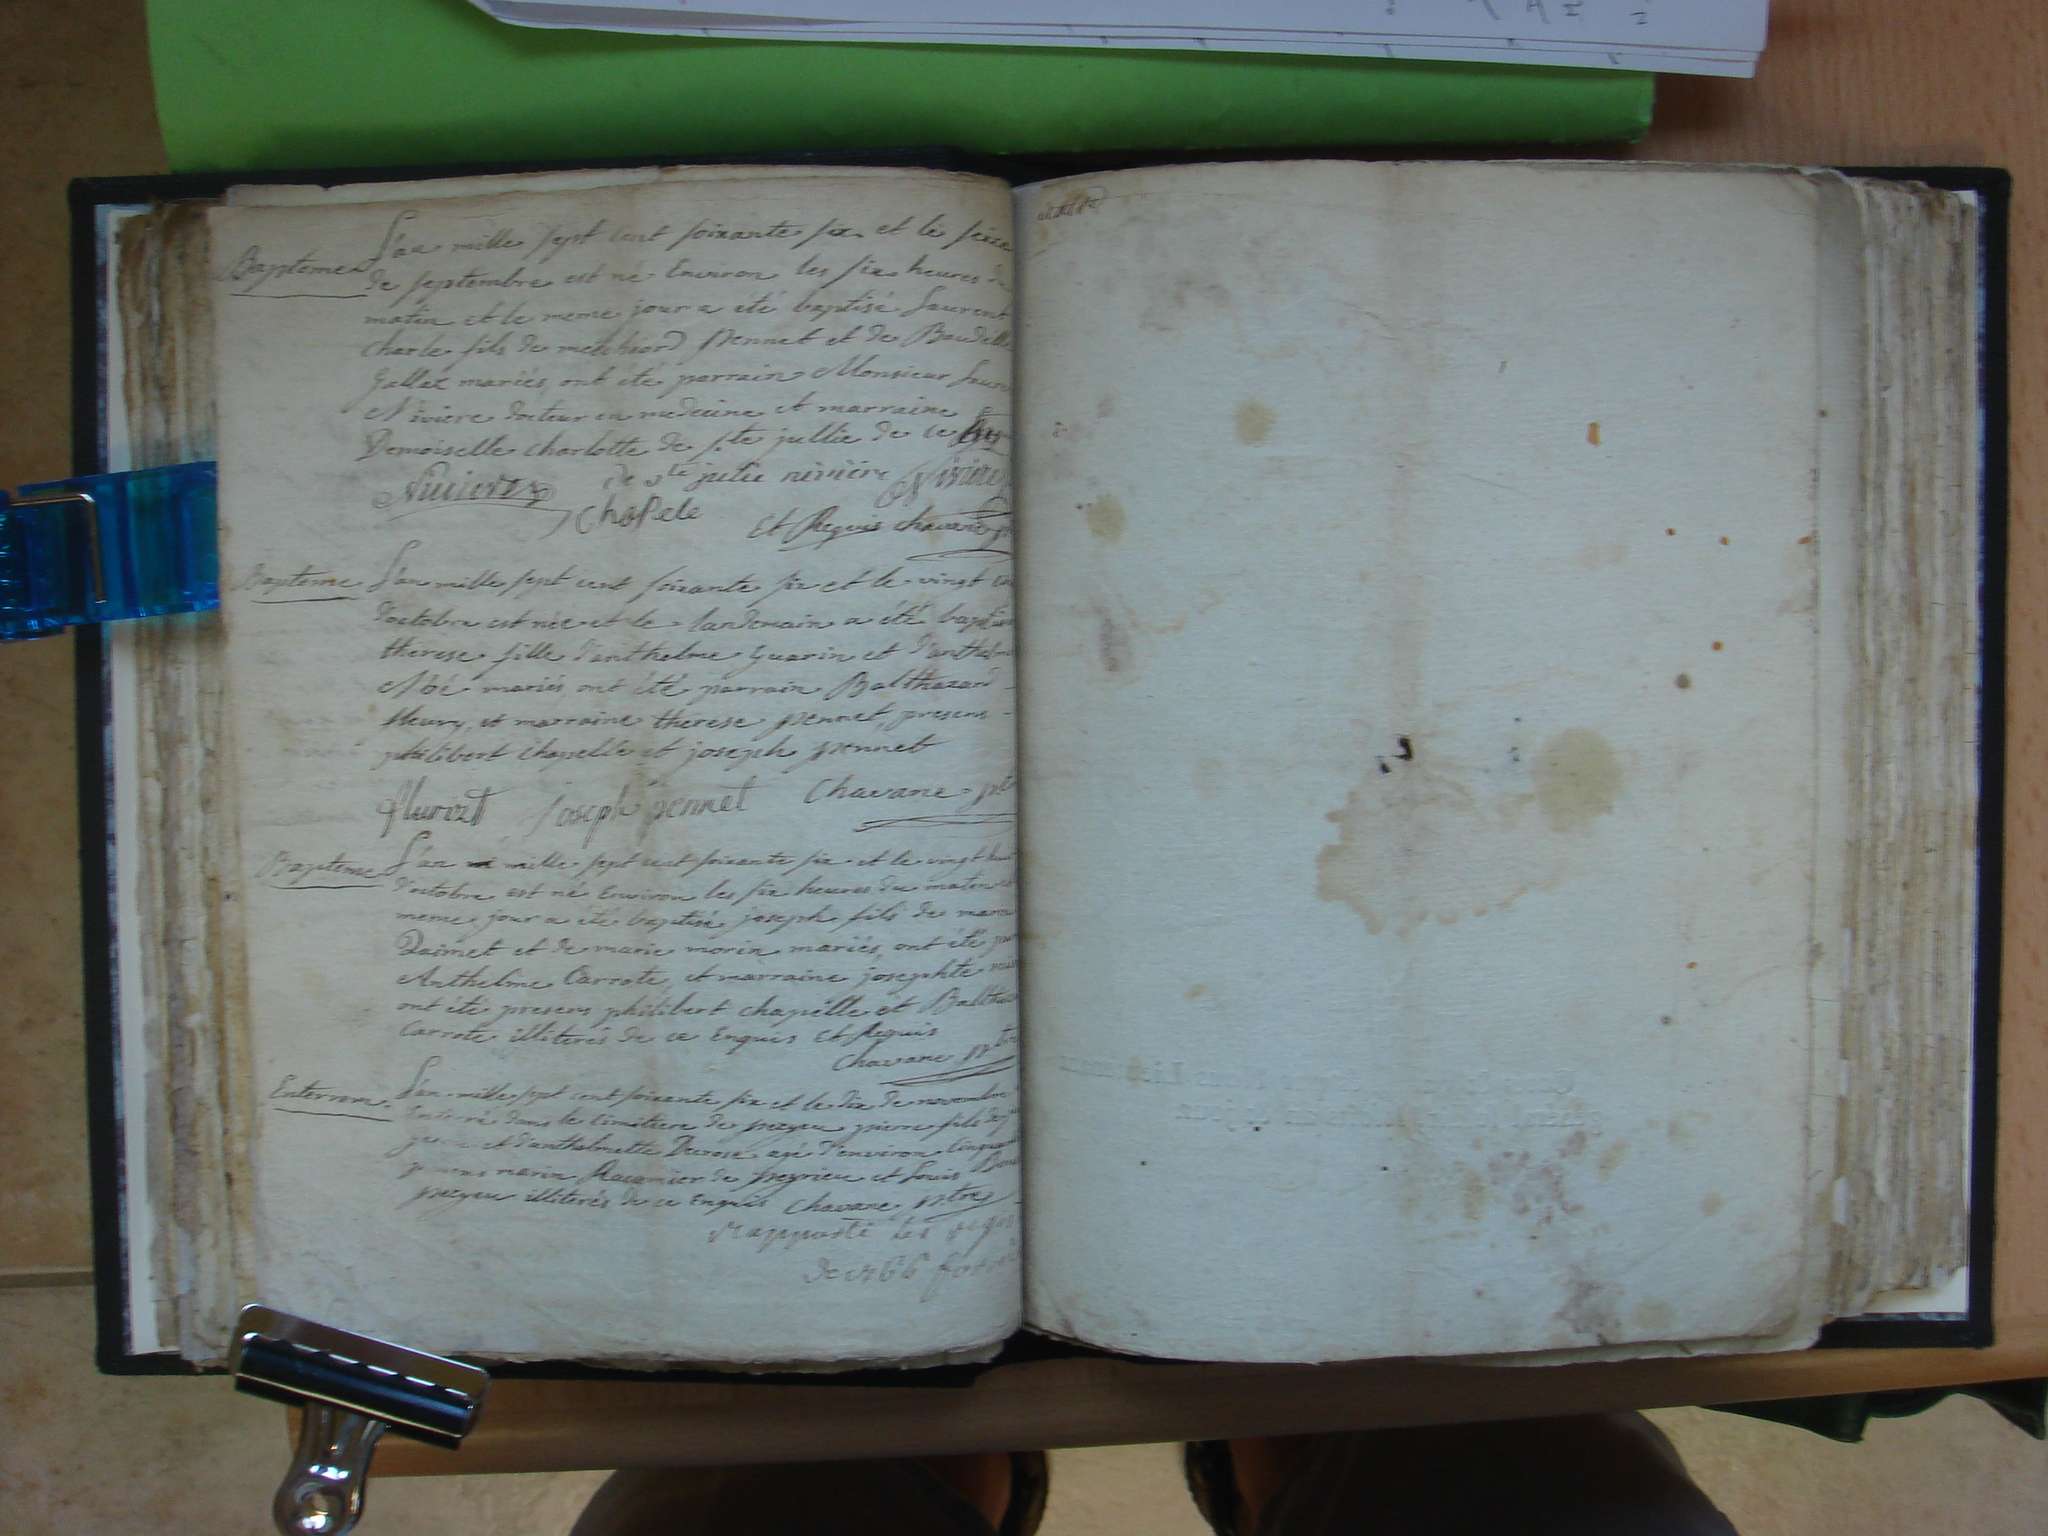 Bapteme L'an mille sept cent soixante six et le seize
de septembre est né Environ les six heures du
matin et le meme jour a eté baptisé Laurent
charle fils de melchior pennet et de Baudille
Gallet mariés, ont été parrain Monsieur
Niviere docteur en medecine et marraine
Demoiselle charlotte de s.te jullie de ce
de ste julie nivière Nivière
chapele Et Requis chavane
Bapteme L'an mille sept cent soixante six et le vingt
d'octobre est née et le landemain a été
therese fille d'anthelme Guarin et
mariés ont été parrain Balthazard
fleury, et marraine therese pennet, presens
philibert chapelle et joseph pennet
joseph pennet Chavane ptre
Bapteme L'an mille sept cent soixante six et le vingt
d'octobre est né Environ les six heures du matin
meme jour a été baptisé joseph fils de
et de marie morin mariés, ont été
Anthelme Carrote, et marraine josephte
ont été presens philibert chapelle et
Carrote illiterés de ce Enquis Et Requis
Chavane ptre
Enterrem. L'an mille sept cent soixante six et le dix de novembre
Enterré dans le cimitiere de pezieu pierre fils de
et d'anthelmette Decrose agé d'environ
marin de peyrieu et Louis
pezieu illiterés de ce Enquis Chavane ptre
Rapporté les
de 1766